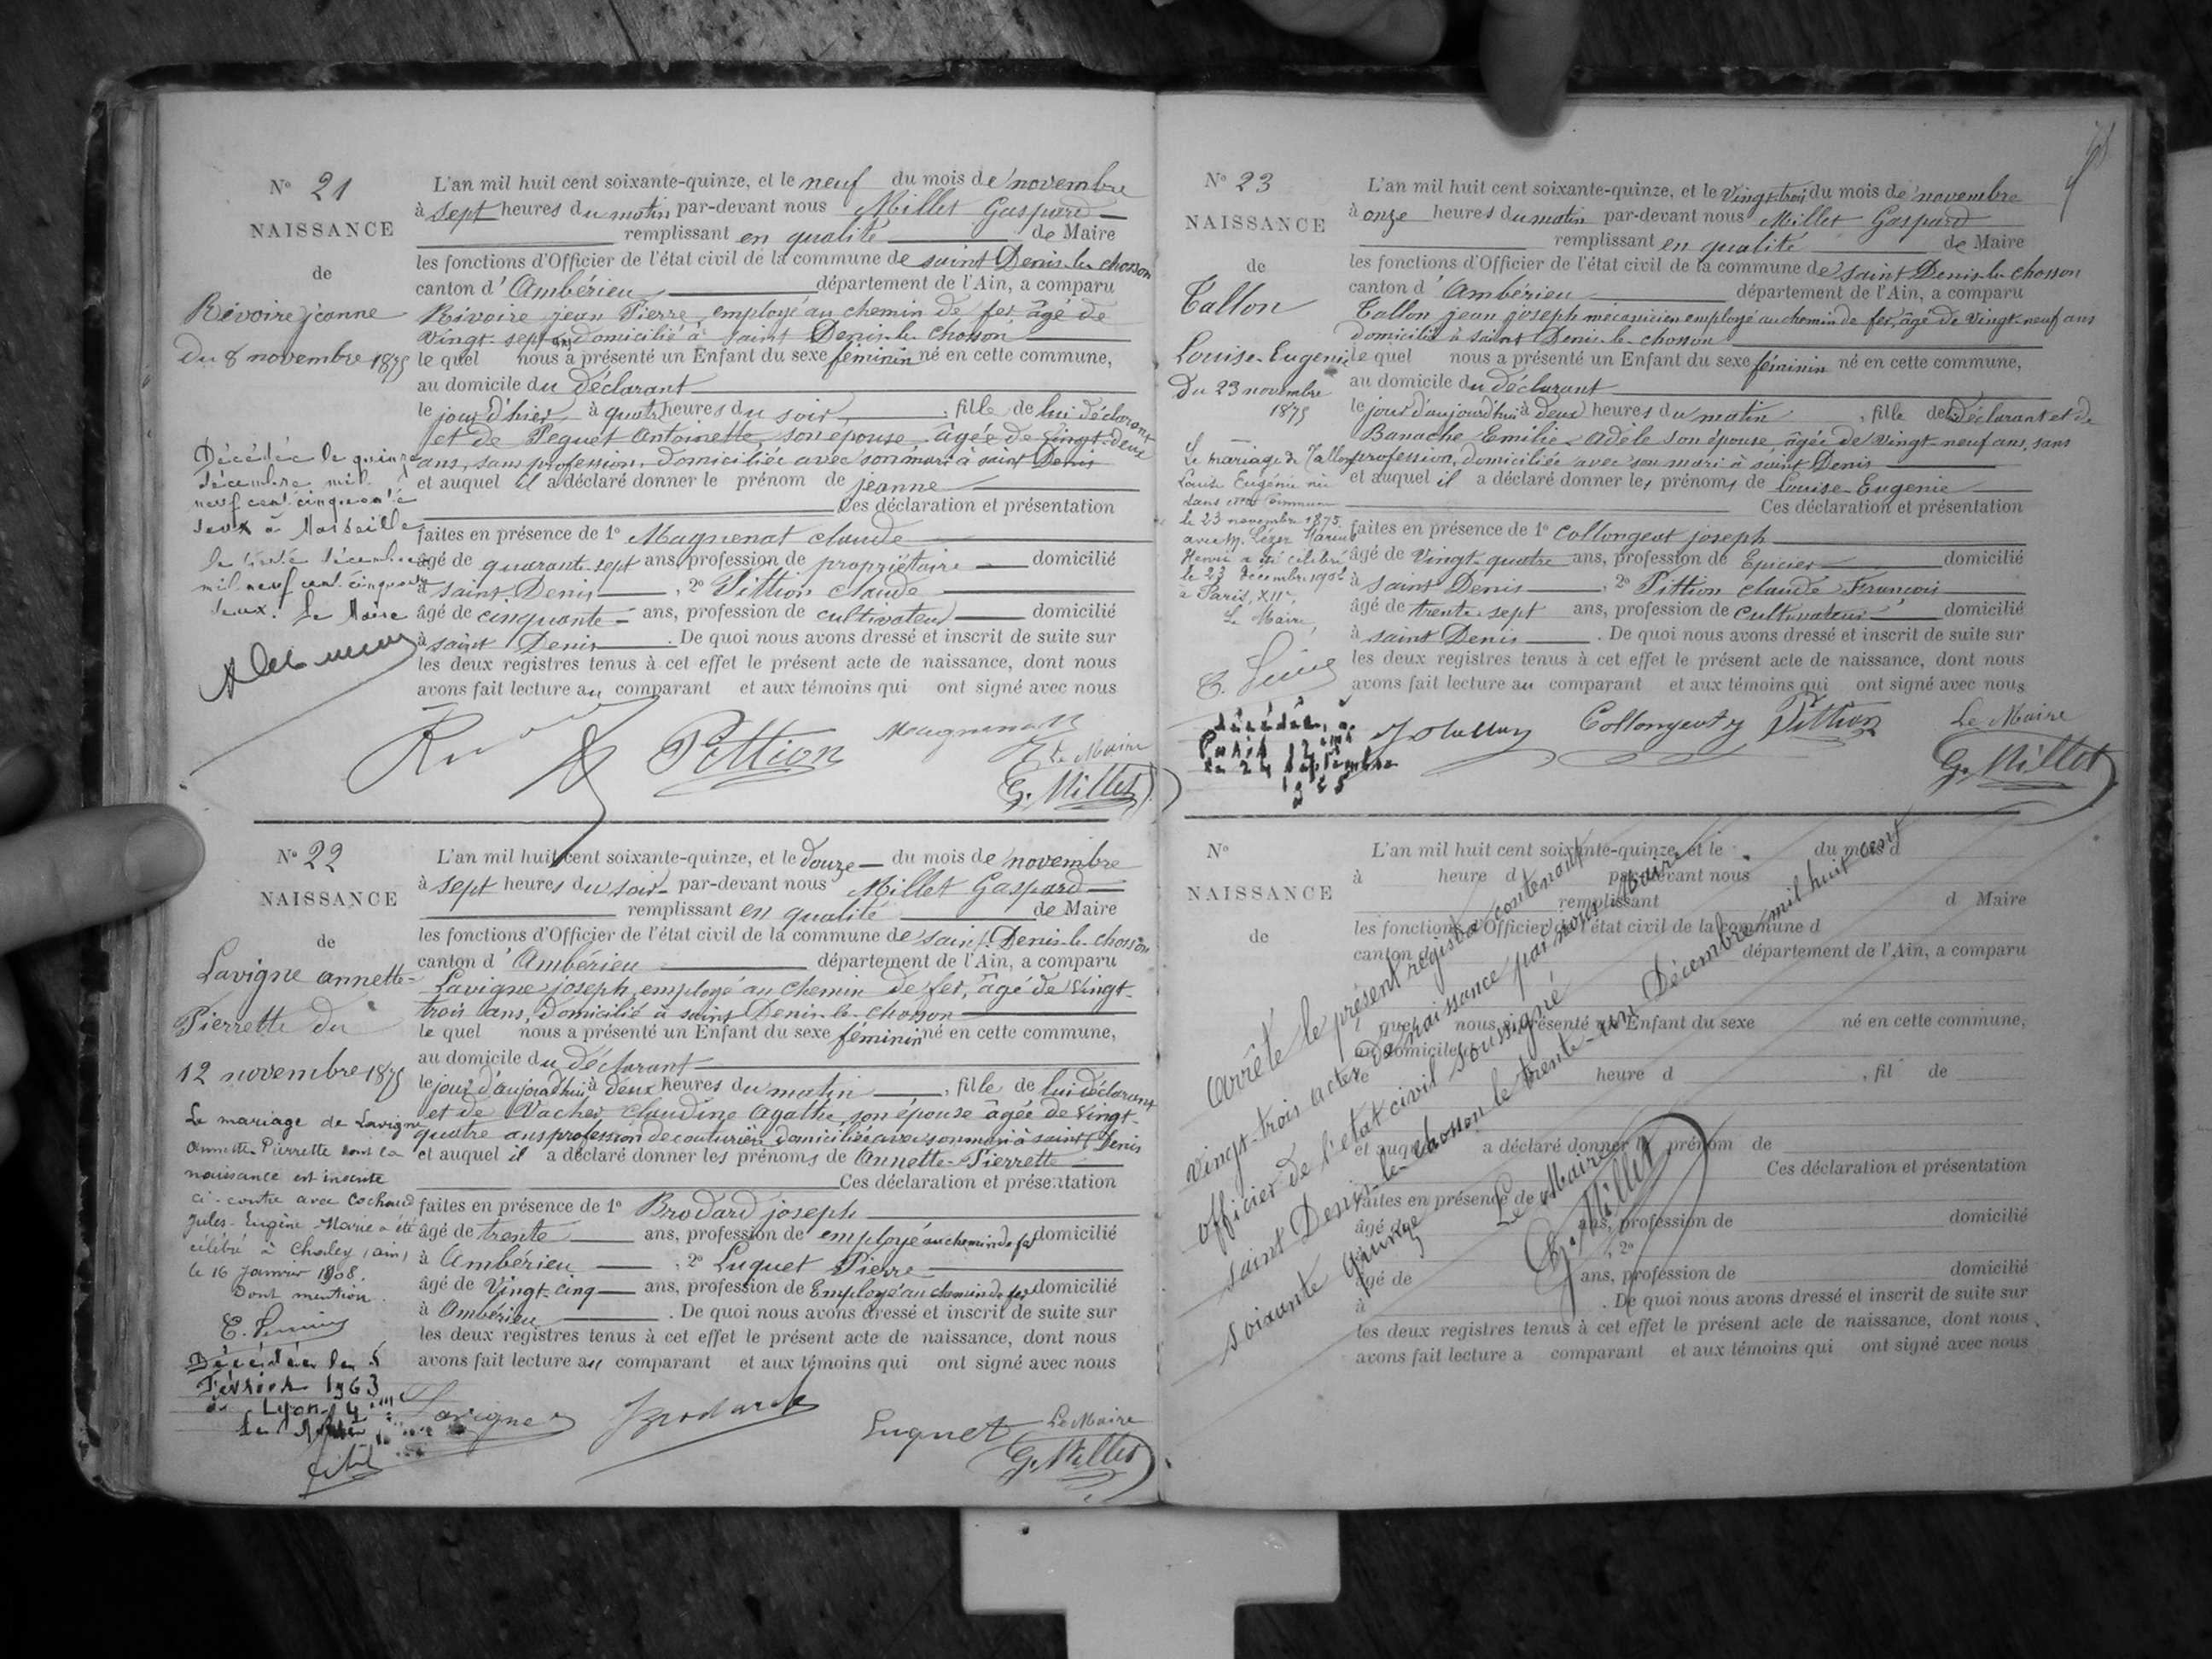 N° 21
NAISSANCE
de
Rivoire jeanne
Du 8 novembre 1875
Décédée le quinze
décembre mil
neuf cent cinquante
deux à Marseille
le trente décembre
mil neuf cent cinquante
deux. Le Maire
L'an mil huit cent soixante-quinze, et le neuf du mois de novembre
à sept heures du matin par-devant nous Millet Gaspard
remplissant en qualité de Maire
les fonctions d'Officier de l'état civil de la commune de saint Denis-le-chosson
canton d'Ambérieu département de l'Ain, a comparu
Rivoire jean Pierre, employé au chemin de fer, âgé de
vingt-sept ans domicilié à saint Denis-le-chosson
le quel nous a présenté un Enfant du sexe féminin né en cette commune,
au domicile du déclarant
le jour d'hier à quatre heures du soir, fille de lui déclarant
et de Peguet Antoinette, son épouse, âgée de vingt-deux
ans, sans profession, domiciliée avec son mari à saint Denis
et auquel il a déclaré donner le prénom de jeanne
Ces déclaration et présentation
faites en présence de 1° Magnenat claude
âgé de quarante-sept ans, profession de propriétaire domicilié
à saint Denis, 2° Pittion claude
âgé de cinquante ans, profession de cultivateur domicilié
à saint Denis. De quoi nous avons dressé et inscrit de suite sur
les deux registres tenus à cet effet le présent acte de naissance, dont nous
avons fait lecture au comparant et aux témoins qui ont signé avec nous
Pittion
Le Maire
G. Millet
N° 22
NAISSANCE
de
Lavigne annette-
Pierrette du
12 novembre 1875
Le mariage de Lavigne
Annette Pierrette dont la
naissance est inscrite
ci-contre avec Cochaud
Jules-Eugène-Marie a été
célébré à Chaley (ain)
le 16 Janvier 1908.
Dont mention.
Décédée le 5
Février 1963
à Lyon 4ème
L'an mil huit cent soixante-quinze, et le douze du mois de novembre
à sept heures du soir par-devant nous Millet Gaspard
remplissant en qualité de Maire
les fonctions d'Officier de l'état civil de la commune de saint Denis-le-chosson
canton d'Ambérieu département de l'Ain, a comparu
Lavigne joseph, employé au chemin de fer, âgé de vingt-
trois ans, domicilié à saint Denis-le-chosson
le quel nous a présenté un Enfant du sexe féminin né en cette commune,
au domicile du déclarant
le jour d'aujourd'hui à deux heures du matin, fille de lui déclarant
et de Vacher Claudine Agathe, son épouse âgée de vingt-
quatre ans profession de couturière domiciliée avec son mari à saint Denis
et auquel il a déclaré donner les prénoms de Annette-Pierrette
Ces déclaration et présentation
faites en présence de 1° Brodard joseph
âgé de trente ans, profession de employé au chemin de fer domicilié
à Ambérieu, 2° Luquet Pierre
âgé de vingt-cinq ans, profession de Employé au chemin de fer domicilié
à Ambérieu. De quoi nous avons dressé et inscrit de suite sur
les deux registres tenus à cet effet le présent acte de naissance, dont nous
avons fait lecture au comparant et aux témoins qui ont signé avec nous
Lavigne Brodard Luquet Le Maire
G. Millet
N° 23
NAISSANCE
de
Tallon
Louise-Eugenie
Du 23 novembre
1875
Le mariage de Tallon
Louise Eugénie née
dans cette Commune
le 23 novembre 1875
avec M. Léger Marius
Henri a été célébré
le 23 décembre 1902
à Paris, XIIe,
Le Maire,
décédée à
Paris 12ème
le 24 septembre
L'an mil huit cent soixante-quinze, et le vingt-trois du mois de novembre
à onze heures du matin par-devant nous Millet Gaspard
remplissant en qualité de Maire
les fonctions d'Officier de l'état civil de la commune de saint Denis-le-chosson
canton d'Ambérieu département de l'Ain, a comparu
Tallon jean joseph mécanicien employé au chemin de fer, âgé de vingt-neuf ans
domicilié à saint Denis-le-chosson
le quel nous a présenté un Enfant du sexe féminin né en cette commune,
au domicile du déclarant
le jour d'aujourd'hui à deux heures du matin, fille de lui déclarant et de
Banache Emilie-Adèle son épouse âgée de vingt-neuf ans, sans
profession, domiciliée avec son mari à saint Denis
et auquel il a déclaré donner les prénoms de Louise-Eugenie
Ces déclaration et présentation
faites en présence de 1° Collongeat joseph
âgé de vingt-quatre ans, profession de Epicier domicilié
à saint Denis, 2° Pittion claude François
âgé de trente-sept ans, profession de Cultivateur domicilié
à saint Denis. De quoi nous avons dressé et inscrit de suite sur
les deux registres tenus à cet effet le présent acte de naissance, dont nous
avons fait lecture au comparant et aux témoins qui ont signé avec nous
Collongeat j Pittion Le Maire
G. Millet
N°
NAISSANCE
de
L'an mil huit cent soixante-quinze, et le du mois d
à heure d par-devant nous
remplissant d Maire
les fonctions d'Officier de l'état civil de la commune d
canton d département de l'Ain, a comparu
quel nous a présenté un Enfant du sexe né en cette commune,
au domicile
le heure d , fil de
et auquel a déclaré donner le prénom de
Ces déclaration et présentation
faites en présence de
âgé de ans, profession de domicilié
à , 2°
âgé de ans, profession de domicilié
à . De quoi nous avons dressé et inscrit de suite sur
les deux registres tenus à cet effet le présent acte de naissance, dont nous
avons fait lecture a comparant et aux témoins qui ont signé avec nous
Arrêté le présent registre contenant
vingt-trois actes de naissance par nous Maire
officier de l'état civil soussigné
saint Denis-le-chosson le trente-un Décembre mil huit cent
soixante quinze
Le Maire
G. Millet